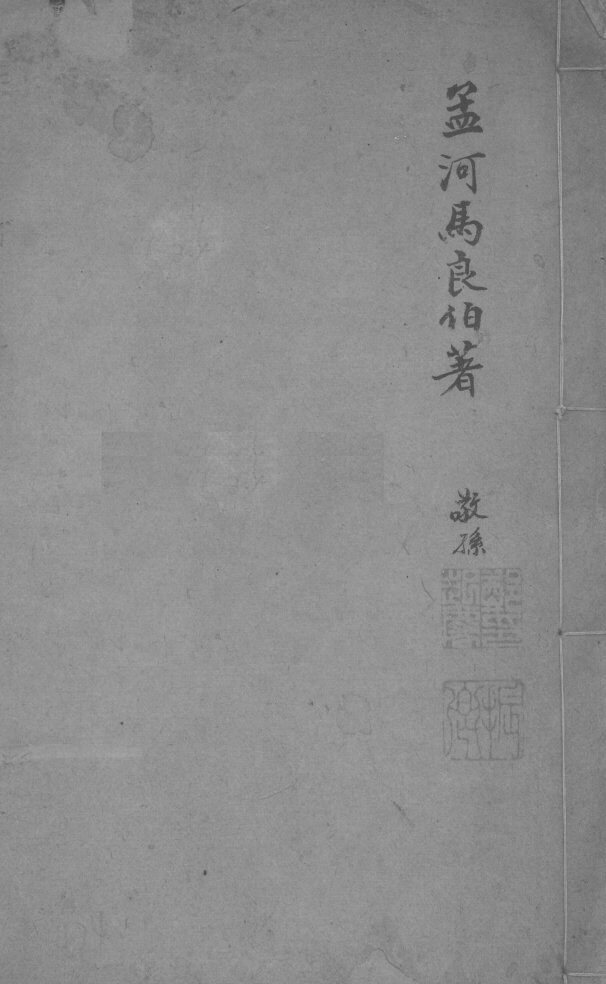 孟河馬良伯著
敬孫